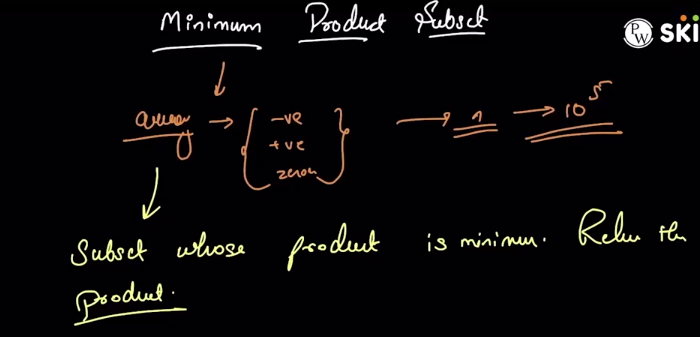 Minimum Product Subset
PW SKI
array → { -ve → n → 10^5
+ve
zeros }
Subset whose product is minimum. Return the
product.